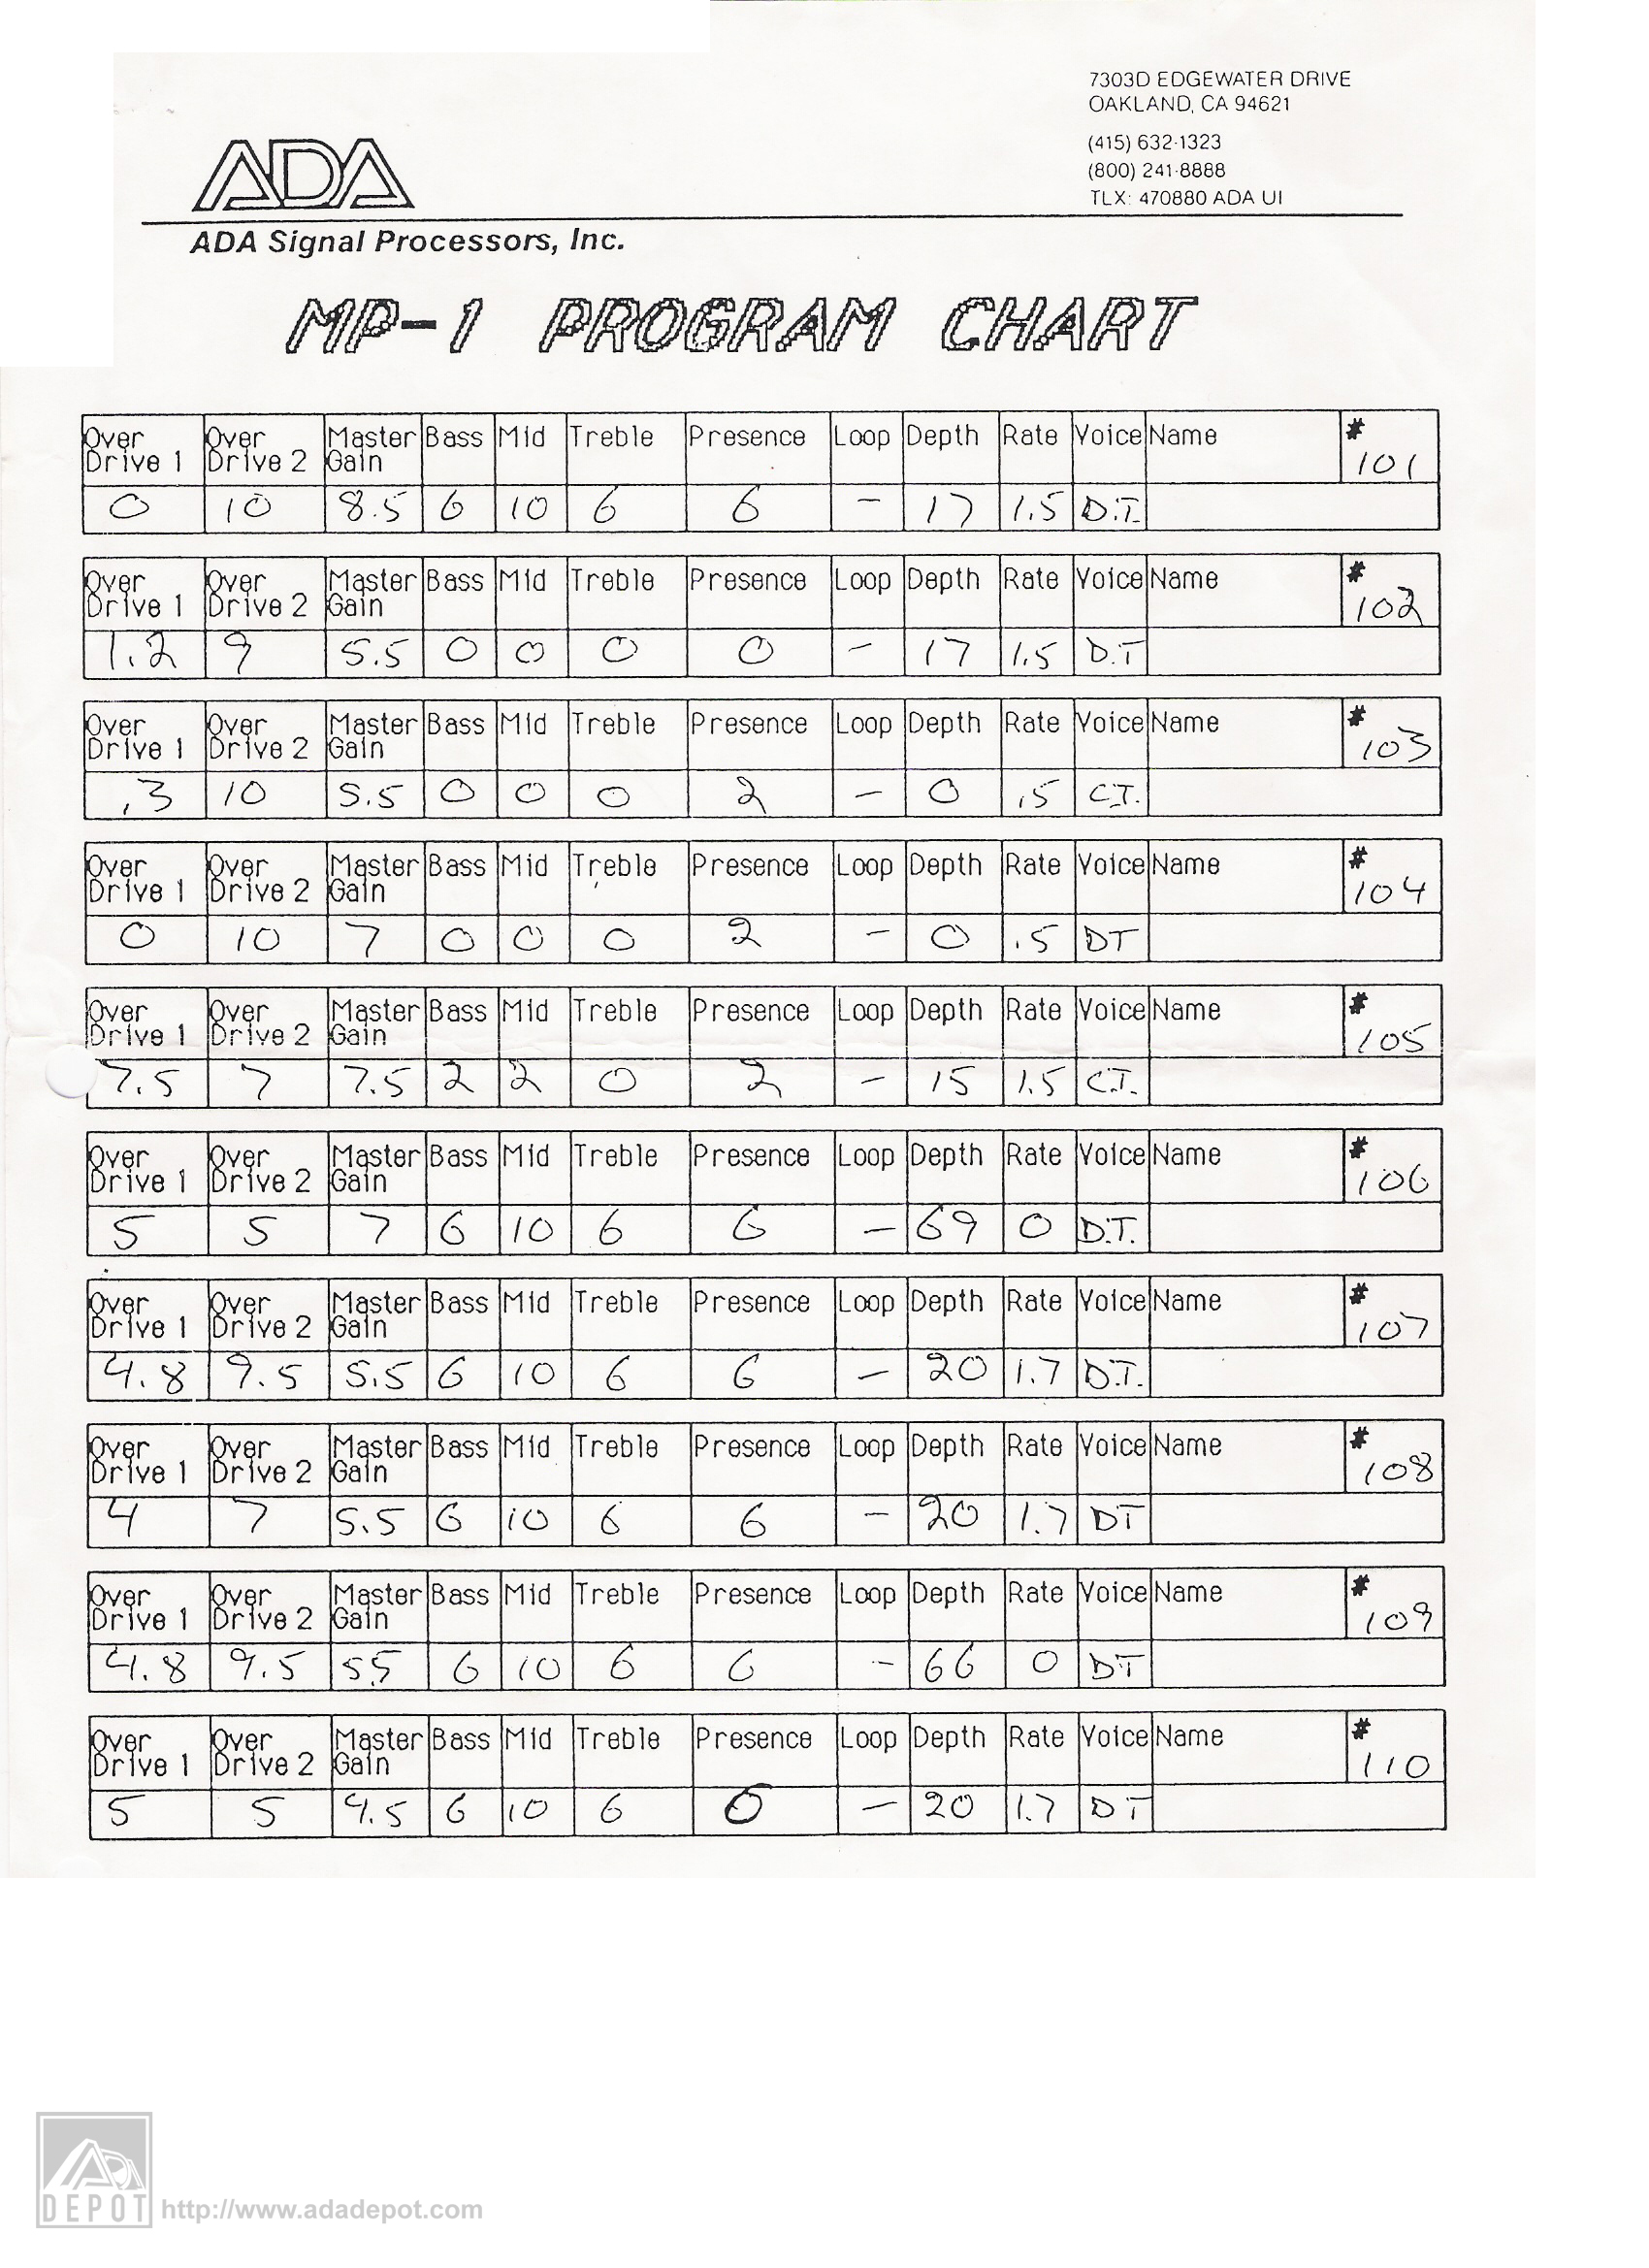 7303D EDGEWATER DRIVE
OAKLAND, CA 94621
(415) 632-1323
(800) 241-8888
TLX: 470880 ADA UI
ADA
ADA Signal Processors, Inc.
MP-1 PROGRAM CHART
Over Drive 1 Over Drive 2 Master Gain Bass Mid Treble Presence Loop Depth Rate Voice Name # 101
0 10 8.5 6 10 6 6 - 17 1.5 D.T.
Over Drive 1 Over Drive 2 Master Gain Bass Mid Treble Presence Loop Depth Rate Voice Name # 102
1.2 9 5.5 0 0 0 0 - 17 1.5 D.T
Over Drive 1 Over Drive 2 Master Gain Bass Mid Treble Presence Loop Depth Rate Voice Name # 103
.3 10 5.5 0 0 0 2 - 0 .5 C.T.
Over Drive 1 Over Drive 2 Master Gain Bass Mid Treble Presence Loop Depth Rate Voice Name # 104
0 10 7 0 0 0 2 - 0 .5 DT
Over Drive 1 Over Drive 2 Master Gain Bass Mid Treble Presence Loop Depth Rate Voice Name # 105
7.5 7 7.5 2 2 0 2 - 15 1.5 C.T.
Over Drive 1 Over Drive 2 Master Gain Bass Mid Treble Presence Loop Depth Rate Voice Name # 106
5 5 7 6 10 6 6 - 69 0 D.T.
Over Drive 1 Over Drive 2 Master Gain Bass Mid Treble Presence Loop Depth Rate Voice Name # 107
4.8 9.5 5.5 6 10 6 6 - 20 1.7 D.T.
Over Drive 1 Over Drive 2 Master Gain Bass Mid Treble Presence Loop Depth Rate Voice Name # 108
4 7 5.5 6 10 6 6 - 20 1.7 DT
Over Drive 1 Over Drive 2 Master Gain Bass Mid Treble Presence Loop Depth Rate Voice Name # 109
4.8 9.5 55 6 10 6 6 - 66 0 DT
Over Drive 1 Over Drive 2 Master Gain Bass Mid Treble Presence Loop Depth Rate Voice Name # 110
5 5 9.5 6 10 6 6 - 20 1.7 DT
ADA
DEPOT http://www.adadepot.com